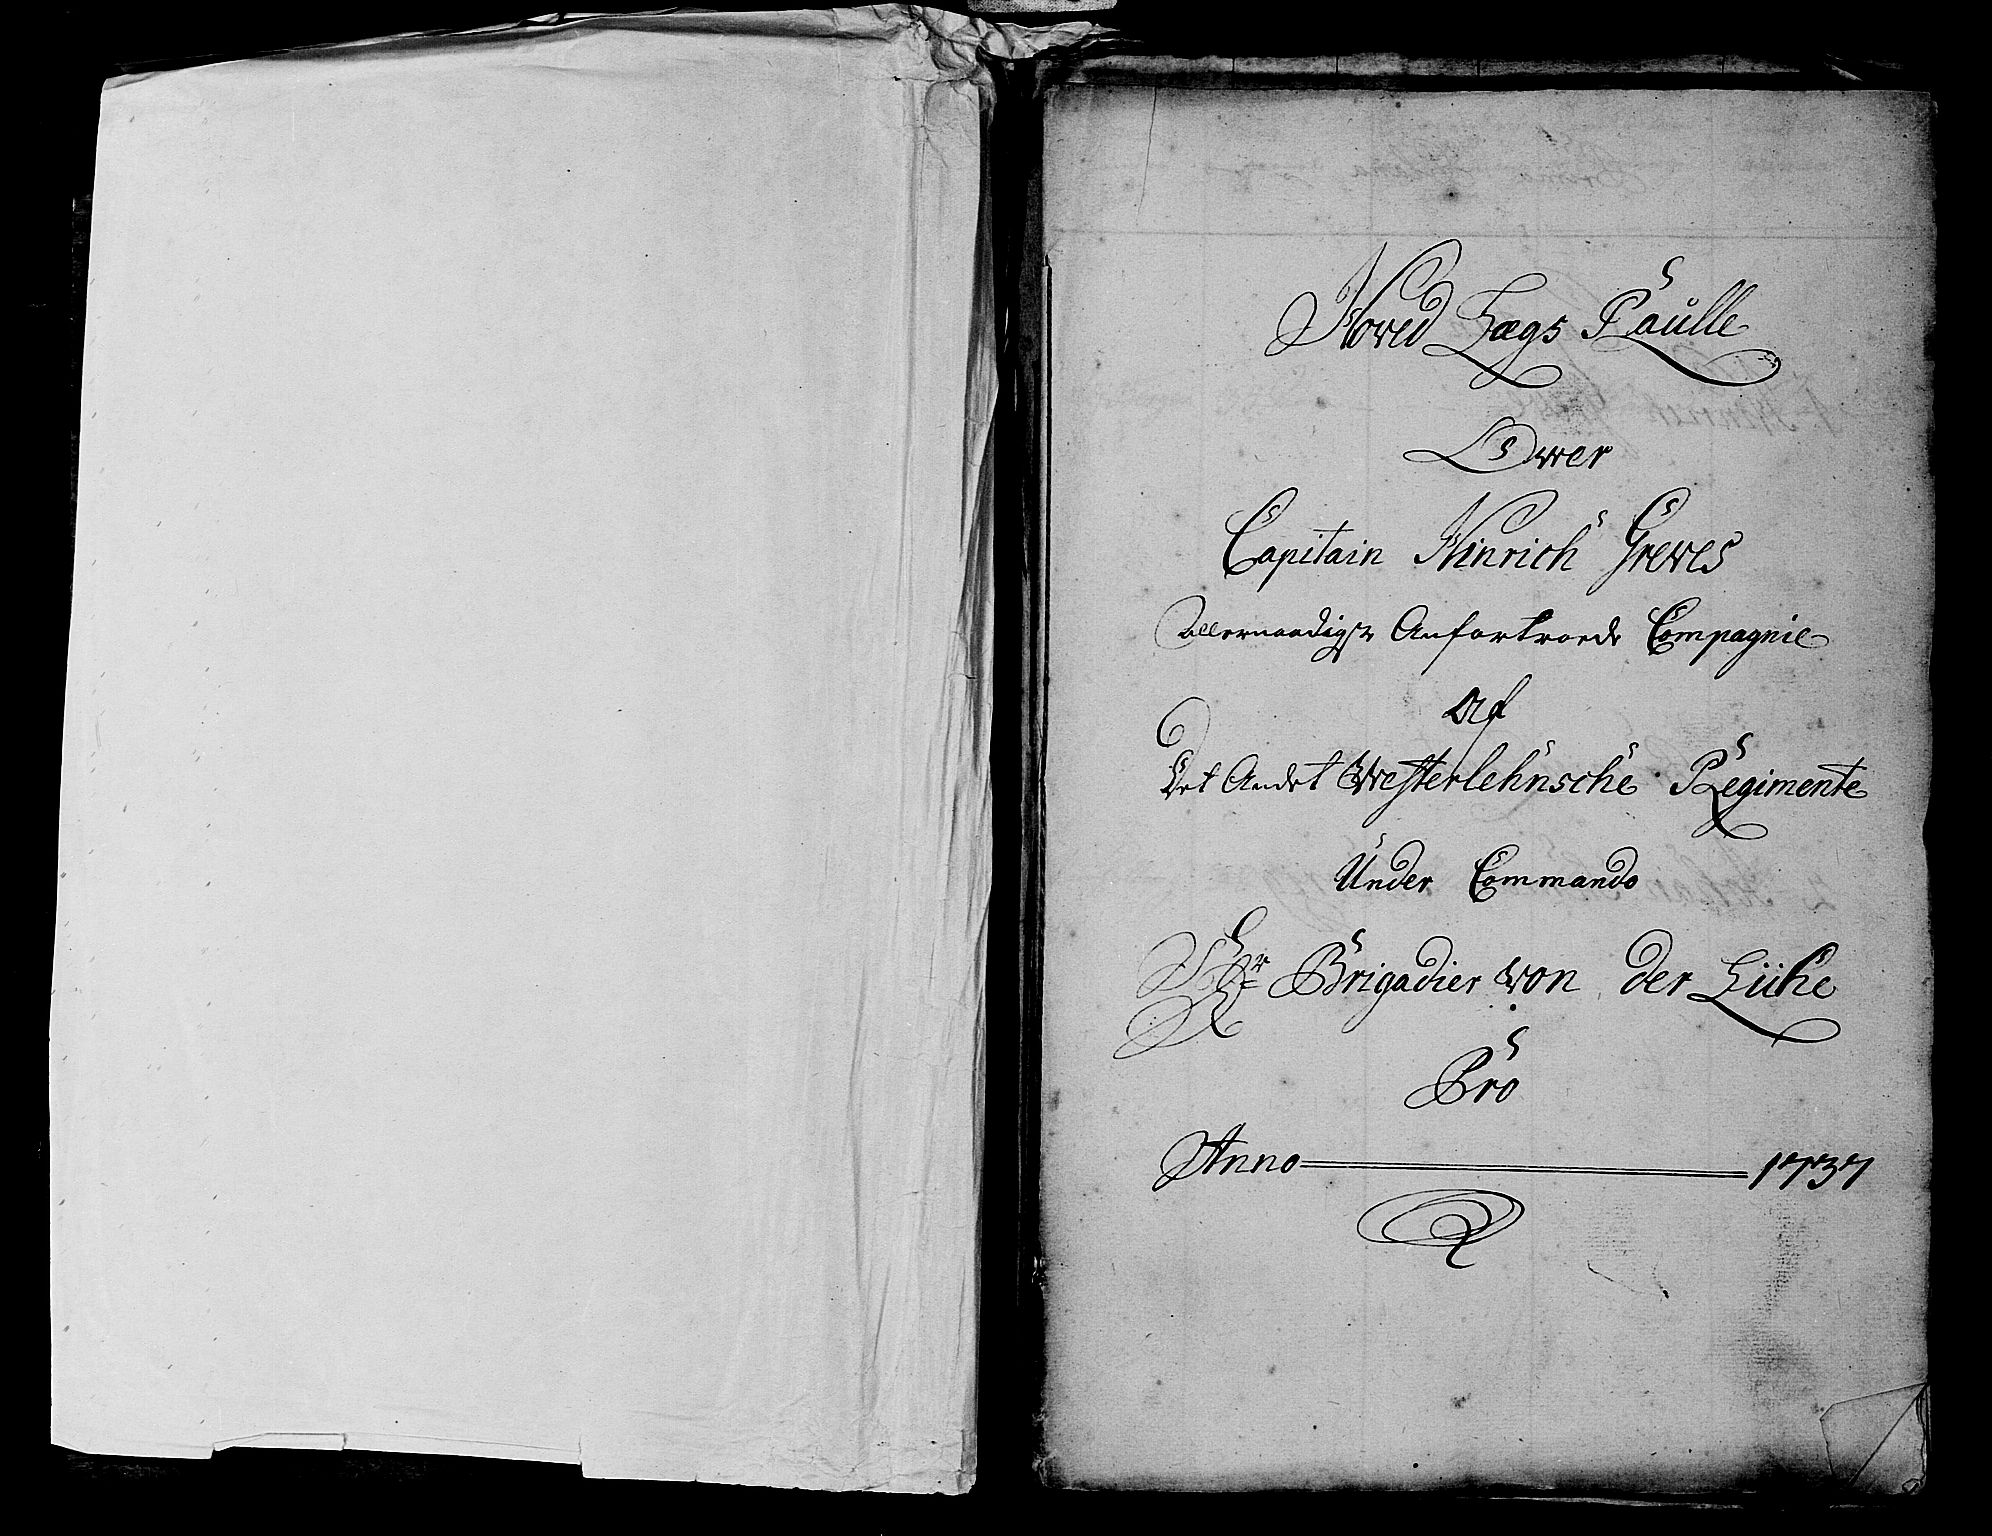 Hoved Lægs Rúlle
Over
Capitain Hinrich Greves
Allernaadigst Anfortroede Compagnie
Af
Det Andet Westerlehnsche Regimente
Under Commando
Hr Brigadier von der Lühe
Pro
Anno 1737